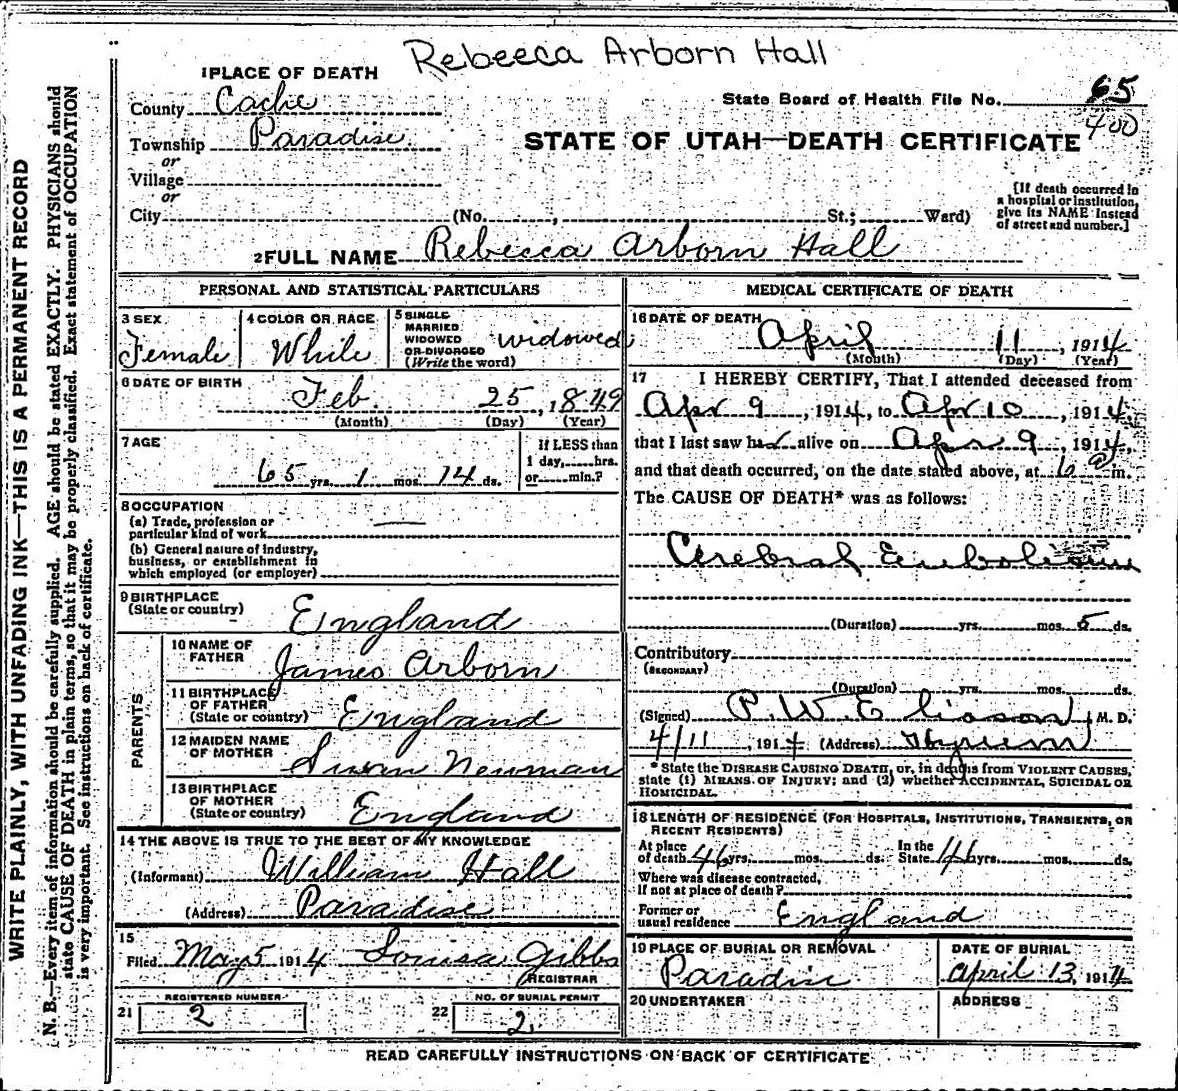 Rebecca Arborn Hall
1 PLACE OF DEATH
County Cache
State Board of Health File No. 65
400
Township Paradise
STATE OF UTAH—DEATH CERTIFICATE
or
Village
or
City (No. , St.; Ward)
[If death occurred in
a hospital or institution,
give its NAME instead
of street and number.]
2 FULL NAME Rebecca Arborn Hall
PERSONAL AND STATISTICAL PARTICULARS
3 SEX
Female
4 COLOR OR RACE
White
5 SINGLE
MARRIED
WIDOWED
OR DIVORCED
(Write the word)
widowed
6 DATE OF BIRTH
Feb. 25, 1849
(Month) (Day) (Year)
7 AGE
65 yrs. 1 mos. 14 ds.
If LESS than
1 day, hrs.
or min.?
8 OCCUPATION
(a) Trade, profession or
particular kind of work —
(b) General nature of industry,
business, or establishment in
which employed (or employer)
9 BIRTHPLACE
(State or country) England
PARENTS
10 NAME OF
FATHER James Arborn
11 BIRTHPLACE
OF FATHER
(State or country) England
12 MAIDEN NAME
OF MOTHER Susan Newman
13 BIRTHPLACE
OF MOTHER
(State or country) England
14 THE ABOVE IS TRUE TO THE BEST OF MY KNOWLEDGE
(Informant) William Hall
(Address) Paradise
15
Filed May 5 1914 Louisa Gibbs
REGISTRAR
21 REGISTERED NUMBER
2
22 NO. OF BURIAL PERMIT
2
MEDICAL CERTIFICATE OF DEATH
16 DATE OF DEATH
April 11, 1914
(Month) (Day) (Year)
17 I HEREBY CERTIFY, That I attended deceased from
Apr 9, 1914, to Apr 10, 1914,
that I last saw her alive on Apr 9, 1914,
and that death occurred, on the date stated above, at 6 a m.
The CAUSE OF DEATH* was as follows:
Cerebral Embolism
(Duration) yrs. mos. 5 ds.
Contributory
(SECONDARY)
(Duration) yrs. mos. ds.
(Signed) P. W. Eliason, M. D.
4/11, 1914 (Address) Hyrum
*State the DISEASE CAUSING DEATH, or, in deaths from VIOLENT CAUSES,
state (1) MEANS OF INJURY; and (2) whether ACCIDENTAL, SUICIDAL OR
HOMICIDAL.
18 LENGTH OF RESIDENCE (FOR HOSPITALS, INSTITUTIONS, TRANSIENTS, OR
RECENT RESIDENTS)
At place
of death 46 yrs. mos. ds.
In the
State 46 yrs. mos. ds.
Where was disease contracted,
if not at place of death?
Former or
usual residence England
19 PLACE OF BURIAL OR REMOVAL
Paradise
DATE OF BURIAL
April 13, 1914
20 UNDERTAKER
ADDRESS
READ CAREFULLY INSTRUCTIONS ON BACK OF CERTIFICATE
WRITE PLAINLY, WITH UNFADING INK—THIS IS A PERMANENT RECORD
N. B.—Every item of information should be carefully supplied. AGE should be stated EXACTLY. PHYSICIANS should
state CAUSE OF DEATH in plain terms, so that it may be properly classified. Exact statement of OCCUPATION
is very important. See instructions on back of certificate.